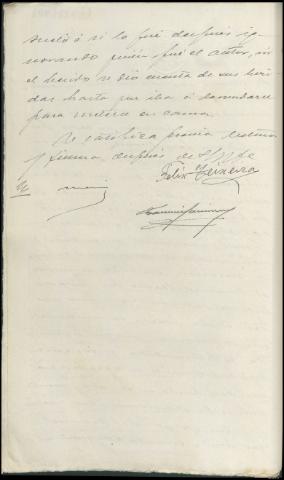 sucedió ó si lo fué después ig-
norando quién fué el autor, ni
el herido se dió cuenta de sus heri
das hasta que iba á desnudarse
para meterse en cama.
Se ratifica previa lectura
y firma después de S. Sª
Felix Teixeira